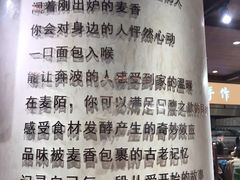 闻着刚出炉的麦香
你会对身边的人怦然心动
一口面包入喉
能让奔波的人感受到家的温暖
在麦陌，你可以满足口腹之欲的同时
感受食材发酵产生的奇妙效应
品味被麦香包裹的古老记忆